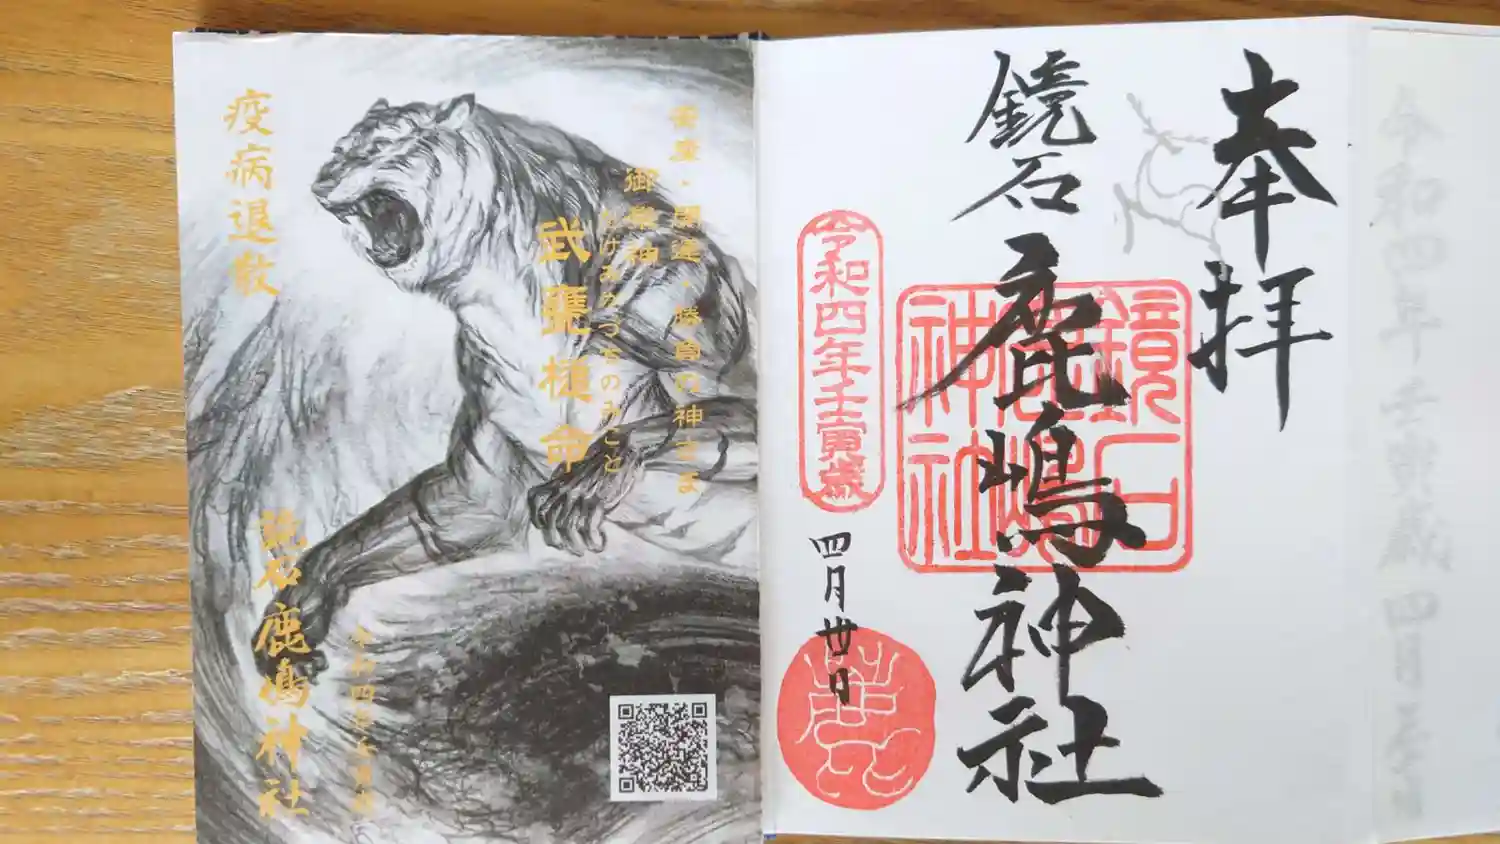 奉拝
鏡石
鹿嶋神社
鏡石
鹿嶋
神社
令和四年壬寅歳
四月丗日
鹿
安産・開運・勝負の神さま
御祭神
たけみかづちのみこと
武甕槌命
疫病退散
令和四年壬寅歳
鏡石鹿嶋神社